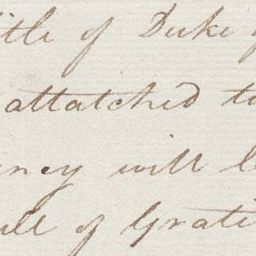 itle of Duke
attatched to
ency will
of Grati